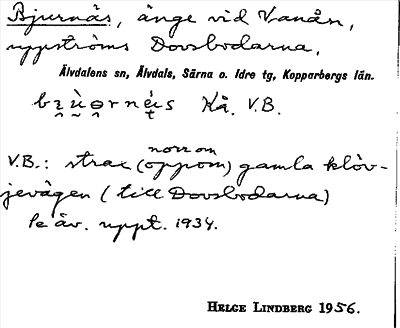 Bjurnäs, änge vid Vanån,
uppströms Dovsbodarna,
Älvdalens sn, Älvdals, Särna o. Idre tg, Kopparbergs län.
Kå. V.B.
norr om
V.B.: strax (oppom) gamla klöv-
jevägen (till Dovsbodarna)
Se äv. uppt. 1934.
HELGE LINDBERG 1956.